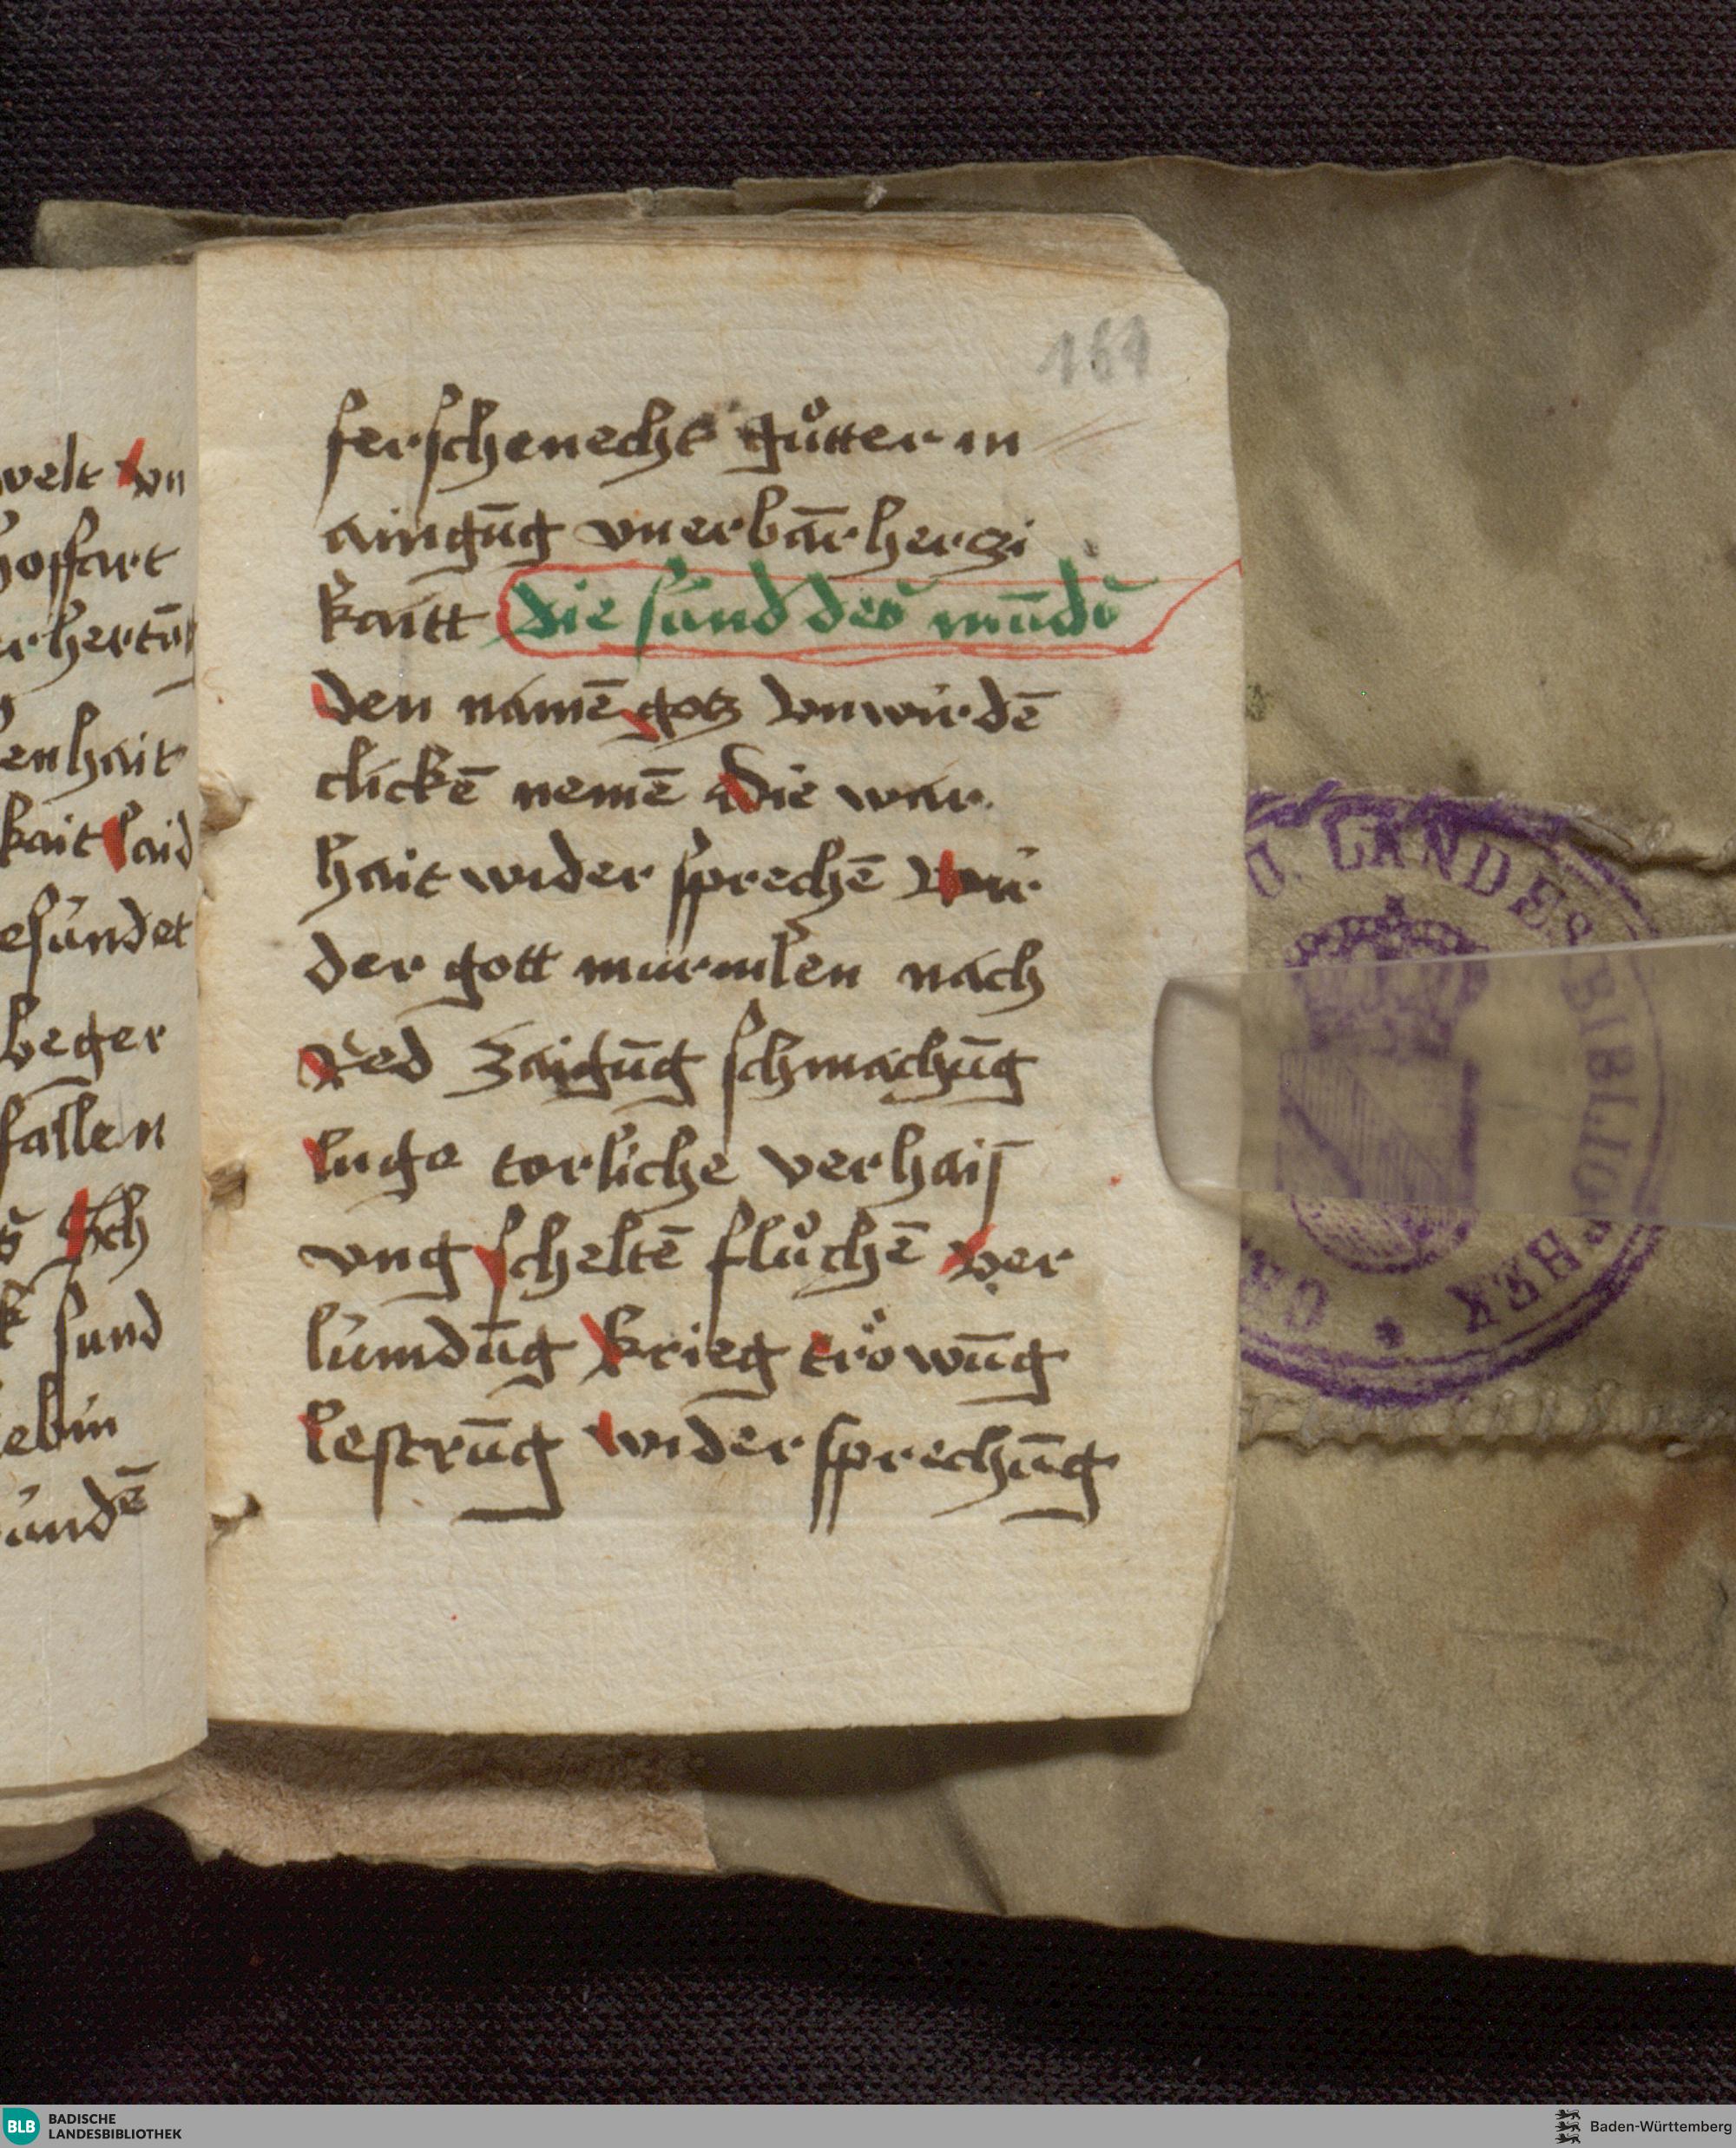 welt vn
hoffart
erhertūg
enhait
kait laid
esúndet
beger
fallen
sch
sund
ebin
úndē
161
ferschenecht gůtter in
aingūg vnerbārherczi
kaitt die súnd des mūds
den namē gotz vnwirdē
clickē nemē die war
hait wider sprechē wi
der gott murmlen nach
red zaigūg schmachūg
luge torliche verhaiſ
ung scheltē flůchē ver
lúmdūg krieg tröwūg
lestrūg widersprechūg
D. LANDESBIBLIOTHEK
BLB BADISCHE
LANDESBIBLIOTHEK
Baden-Württemberg